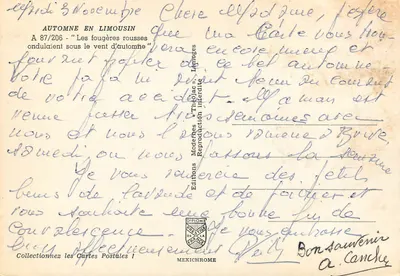 Mardi 3 Novembre Chère Madame, j'espère
AUTOMNE EN LIMOUSIN
A 87/206 - "Les fougères rousses
ondulaient sous le vent d'automne"
que ma Carte vous trou
vera encore mieux et
pouvant profiter de ce bel automne
votre
de votre accident. Maman est
venue passer trois semaines avec
nous et nous l'avons ramenée à Brive
samedi, où nous passons la semaine
Je vous remercie des jolis
brins de lavande et de
vous souhaite une bonne fin de
Convalescence. Je vous embrasse
bien affectueusement
Bon souvenir
Editions Modernes "Théojac" - Limoges
Reproduction interdite
Collectionnez les Cartes Postales !
MEXICHROME